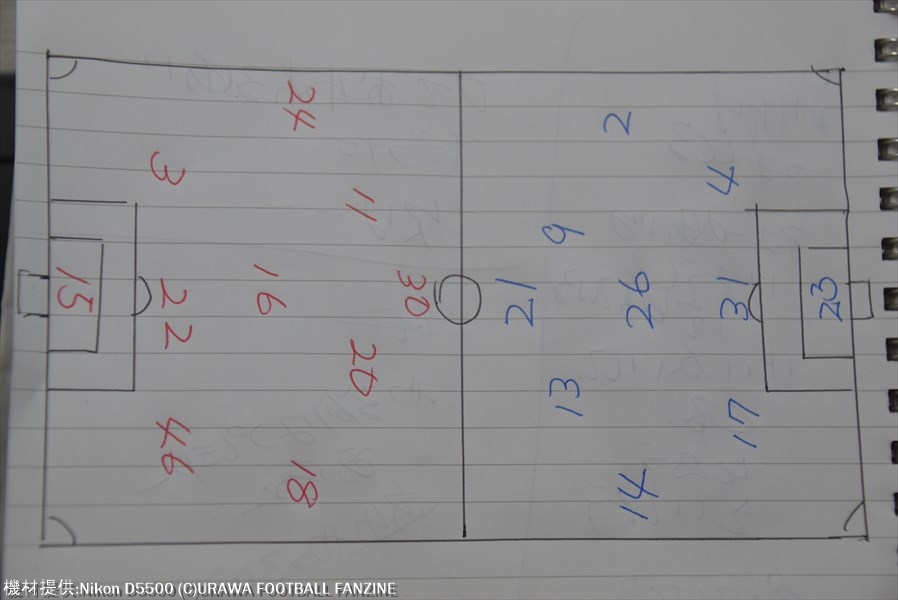 24
3
11
16
30
15
22
20
46
18
2
4
9
21
26
31
23
13
17
14
機材提供:Nikon D5500 (C)URAWA FOOTBALL FANZINE